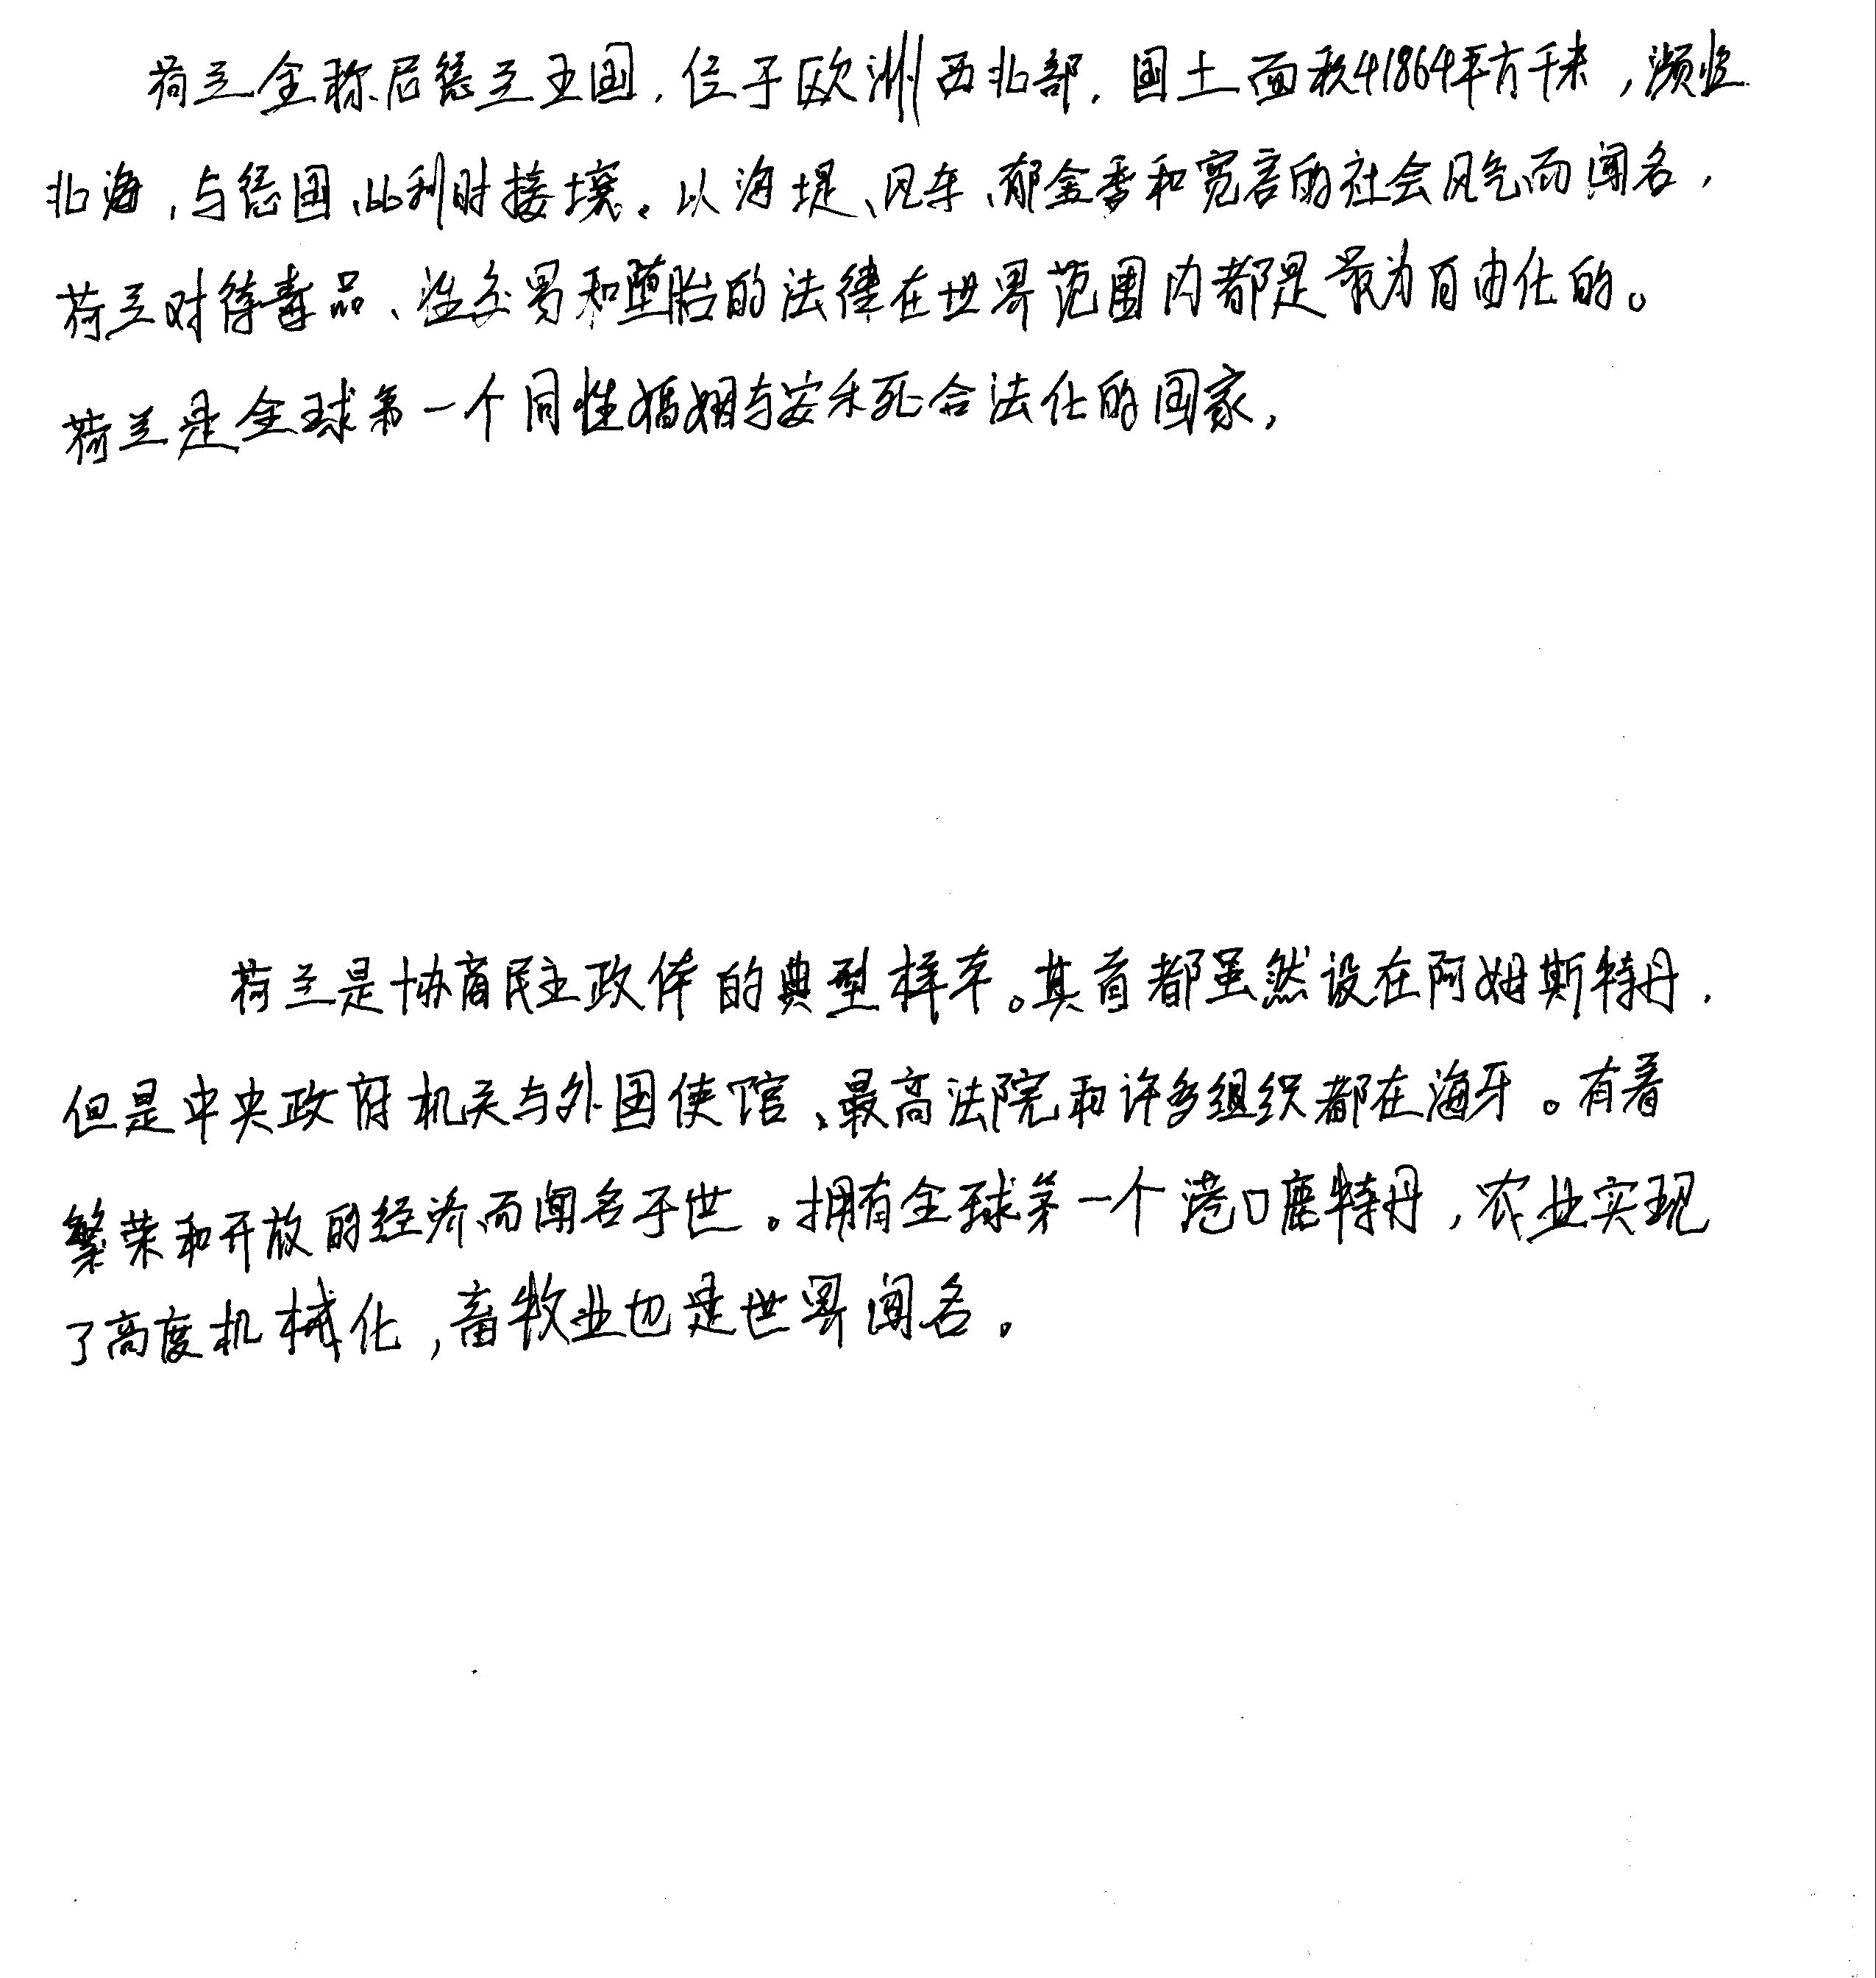 荷兰全称尼德兰王国，位于欧洲西北部，国土面积41864平方千米，濒临
北海，与德国、比利时接壤。以海堤、风车、郁金香和宽容的社会风气而闻名，
荷兰对待毒品、性交易和堕胎的法律在世界范围内都是最为自由化的。
荷兰是全球第一个同性婚姻与安乐死合法化的国家，
荷兰是协商民主政体的典型样本。其首都虽然设在阿姆斯特丹，
但是中央政府机关与外国使馆、最高法院和许多组织都在海牙。有着
繁荣和开放的经济而闻名于世。拥有全球第一个港口鹿特丹，农业实现
了高度机械化，畜牧业也是世界闻名。